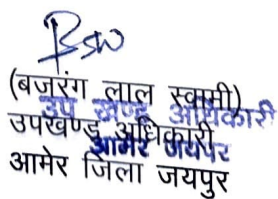 (बजरंग लाल स्वामी)
उप खण्ड अधिकारी
उपखण्ड अधिकारी
आमेर जयपुर
आमेर जिला जयपुर